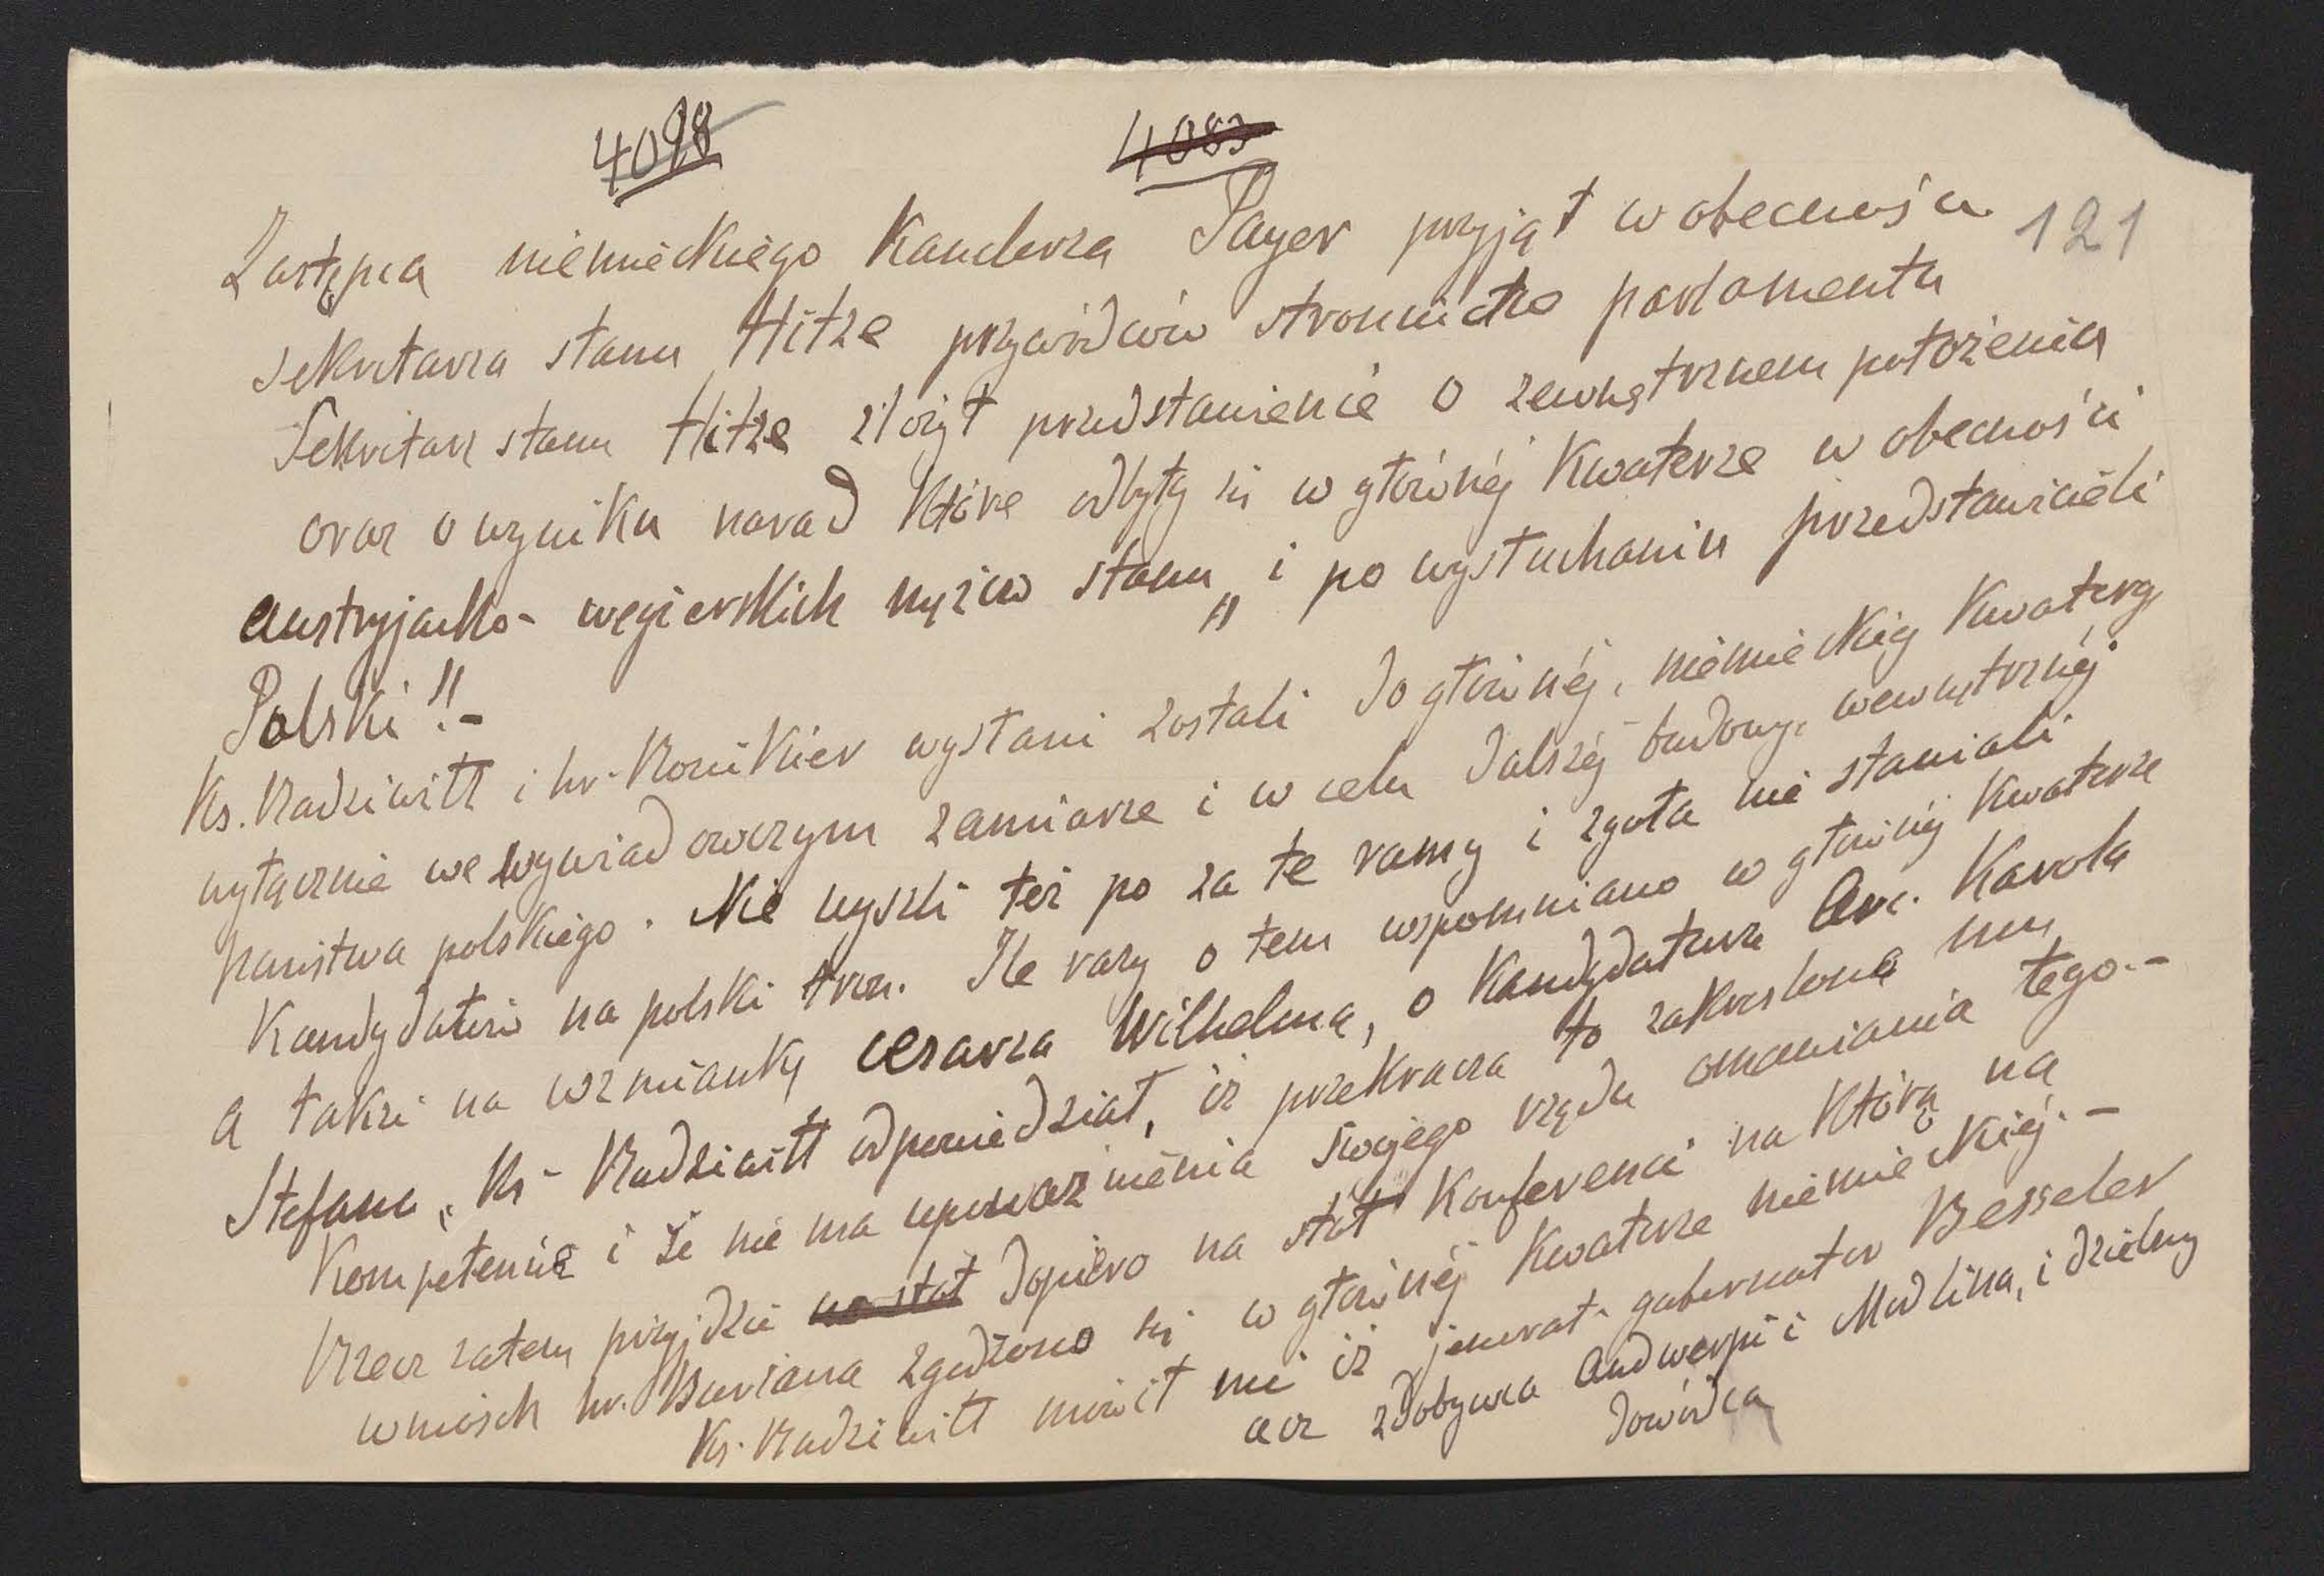 4098 4083
121
Zastępca niemieckiego Kanclerza Payer przyjął w obecności
sekretarza stanu Hitze przywódców stronnictw parlamentu
Sekretarz stanu Hitze złożył przedstawienie o zewnętrznem położeniu
oraz o wyniku narad które odbyły się w głównéj Kwaterze w obecności
austryjacko-węgierskich mężów stanu „i po wysłuchaniu przedstawicieli
Polski"!-
Ks. Radziwiłł i hr. Ronikier wysłani zostali do głównéj, niemieckiéj Kwatery,
wyłącznie we wywiadowczym zamiarze i w celu dalszéj budowy, wewnętrznéj
państwa polskiego. Nie wyszli też po za te ramy i zgoła nie stawiali
Kandydatów na polski tron. Ile razy o tem wspomniano w głównéj Kwaterze
a także na wzmiankę cesarza Wilhelma, o Kandydaturze Arc. Karola
Stefana, Ks. Radziwiłł odpowiedział, iż przekracza to zakreślone mu
Kompetencie i że nie ma upoważnienia swojego rządu omawiania tego.-
Rzecz zatem przyjdzie na stół dopiero na stół Konferencii na którą na
wniosek hr. Buriana zgodzono się w głównéj Kwaterze niemieckiéj.-
Ks. Radziwiłł mówił mi iż jenerał-gubernator Besseler
acz zdobywca Andwerpii i Modlina, i dzielny
dowódca